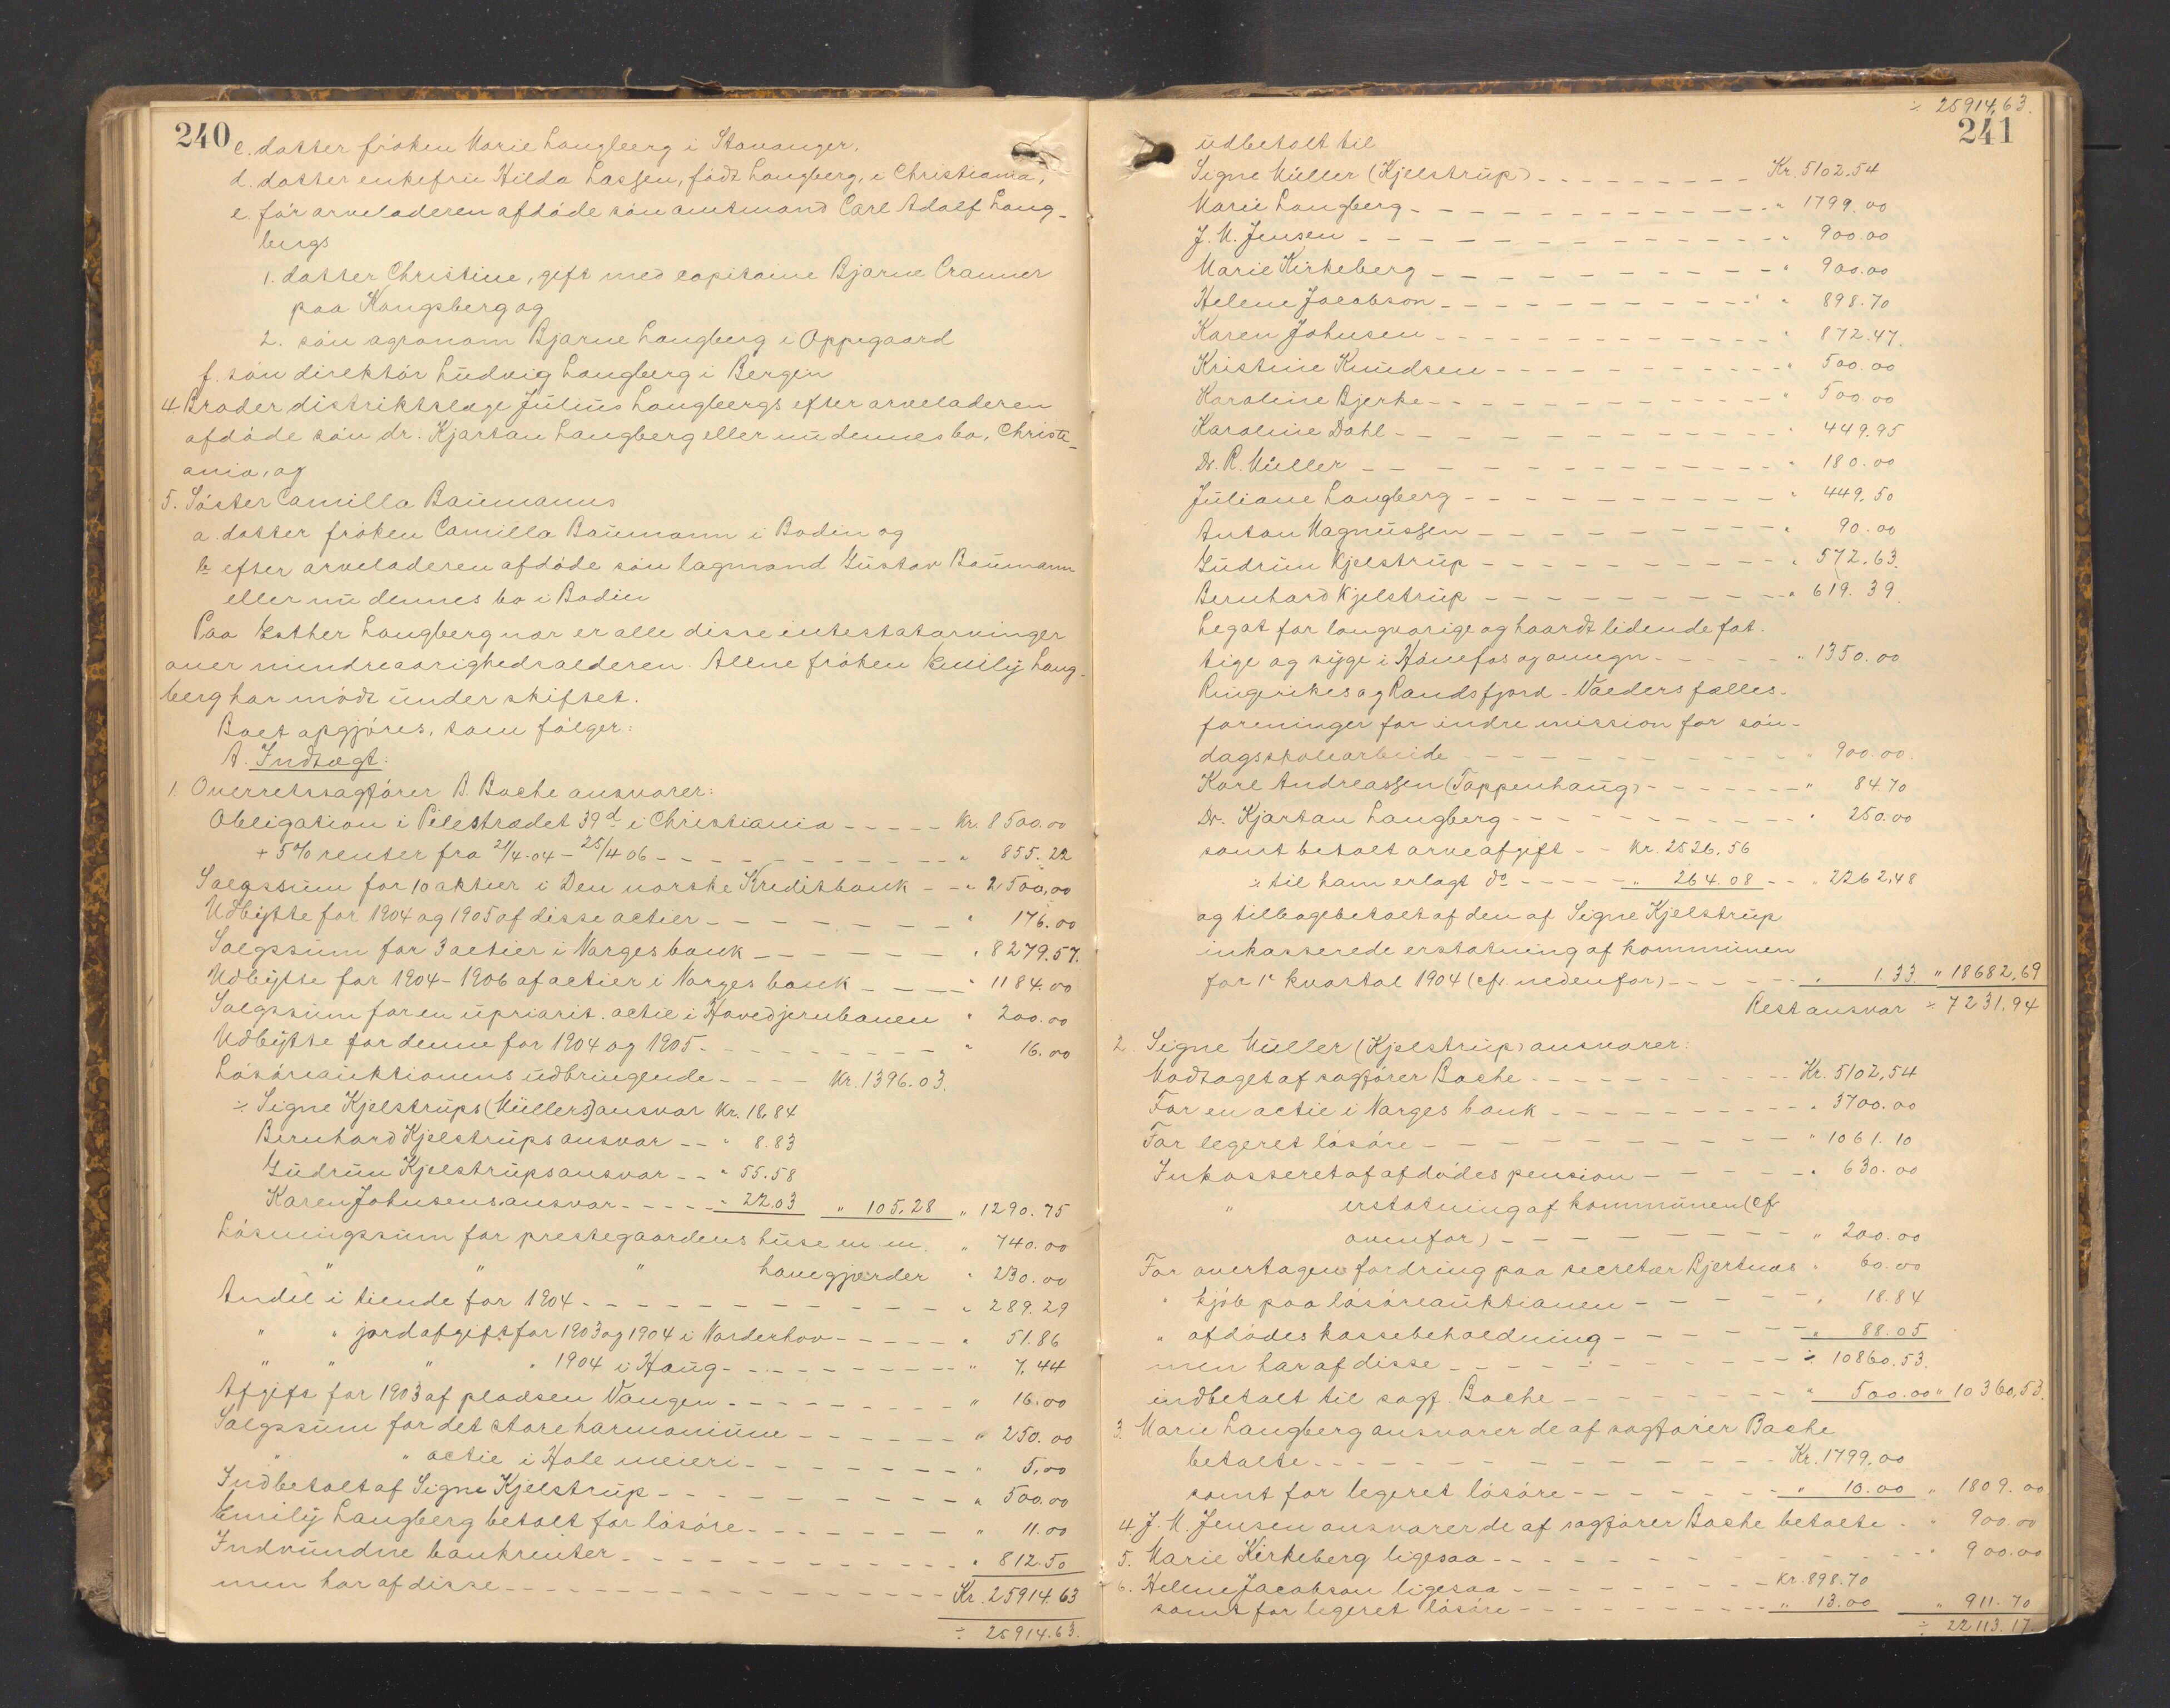 240
c. datter frøken Marie Langberg i Stavanger,
d. datter enkefru Hilda Lassen, født Langberg, i Christiania,
e. før arveladeren afdøde søn amtmand Carl Adolf Lang-
bergs
1. datter Christine, gift med capitaine Bjarne Cranner
paa Kongsberg og
2. søn agronom Bjarne Langberg i Oppegaard
f. søn direktør Ludvig Langberg i Bergen
4. Broder distriktslæge Julius Langbergs efter arveladeren
afdøde søn dr. Kjartan Langberg eller nu dennes bo, Christi-
ania, og
5. Søster Camilla Baumanns
a. datter frøken Camilla Baumann i Bodin og
b. efter arveladeren afdøde søn lagmand Gustav Baumann
eller nu dennes bo i Bodin
Paa Esther Langberg nær er alle disse intestatarvinger
over mindreaarighedsalderen. Alene frøken Emily Lang-
berg har mødt under skiftet.
Boet opgjøres, som følger:
A. Indtægt:
1. Overretssagfører B. Bache ansvarer:
Obligation i Pilestrædet 39d i Christiania - - - - - Kr. 8500.00
+ 5% renter fra 21/4.04 - 25/4 06 - - - - - - - - - - " 855.22
Salgssum for 10 aktier i Den norske Kreditbank - - " 2500,00
Udbytte for 1904 og 1905 af disse actier - - - - - - - " 176.00
Salgssum for 3 actier i Norges bank - - - - - - " 8279.57.
Udbytte for 1904-1906 af actier i Norges bank - - - - " 1184.00
Salgssum for en upriorit. actie i Hovedjernbanen " 200.00
Udbytte for denne for 1904 og 1905 - - - - - - - - " 16.00
Løsøreauktionens udbringende - - - - Kr. 1396.03.
÷ Signe Kjelstrups (Müllers) ansvar Kr. 18.84
Bernhard Kjelstrups ansvar - - " 8.83
Gudrun Kjelstrups ansvar - - " 55.58
Karen Johnsens ansvar - - - - - " 22.03 " 105.28 " 1290.75
Løsningssum for prestegaardens huse m. m. " 740.00
" " " havegjærder " 230.00
Andel i tiende for 1904 - - - - - - - - - - - - " 289.29
" " jordafgift for 1903 og 1904 i Norderhov - - - - - " 51.86
" " " " 1904 i Haug - - - - - - - - - " 7,44
Afgift for 1903 af pladsen Vangen - - - - - - - - - " 16.00
Salgssum for det store harmonium - - - - - - - " 250.00
" " actie i Hole meieri - - - - - - - - " 5,00
Indbetalt af Signe Kjelstrup - - - - - - - - - - " 500.00
Emily Langberg betalt for løsøre - - - - - - - " 11.00
Indvundne bankrenter - - - - - - - - - - - " 812.50
men har af disse - - - - - - - - - - - - - - - Kr. 25914.63
÷ 25914.63.
÷ 25914,63.
241
udbetalt til
Signe Müller (Kjelstrup) - - - - - - - - - Kr. 5102,54
Marie Langberg - - - - - - - - - - - - - " 1799.00
J. M. Jensen - - - - - - - - - - - - - - " 900.00
Marie Kirkeberg - - - - - - - - - - - - " 900.00
Helene Jacobson - - - - - - - - - - - " 898.70
Karen Johnsen - - - - - - - - - - - - - " 872.47.
Kristine Knudsen - - - - - - - - - - - " 500.00
Karoline Bjerke - - - - - - - - - - - - - " 500.00
Karoline Dahl - - - - - - - - - - - - - - " 449.95
Dr. R. Müller - - - - - - - - - - - - - - - " 180.00
Juliane Langberg - - - - - - - - - - - - " 449.50
Anton Magnussen - - - - - - - - - - - " 90.00
Gudrun Kjelstrup - - - - - - - - - - - " 572.63.
Bernhard Kjelstrup - - - - - - - - - - " 619.39.
Legat for langvarige og haardt lidende fat-
tige og syge i Hønefos og omegn - - - - - " 1350.00
Ringerikes og Randsfjord-Valders fælles-
foreninger for indre mission for søn-
dagsskolearbeide - - - - - - - - - - - - - " 900.00.
Kare Andreassen (Tappenhaug) - - - - - - - " 84.70
Dr. Kjartan Langberg - - - - - - - - - - - " 250.00
samt betalt arveafgift - - Kr. 2526,56
÷ til ham erlagt do - - - - - " 264.08 - - " 2262,48
og tilbagebetalt af den af Signe Kjelstrup
inkasserede erstatning af kommunen
for 1ste kvartal 1904 (cfr. nedenfor) - - - - - - " 1.33 " 18682,69
Rest ansvar ÷ 7231,94
2. Signe Müller (Kjelstrup) ansvarer:
Modtaget af sagfører Bache - - - - - - - - - - Kr. 5102,54
For en actie i Norges bank - - - - - - - - - - " 3700.00
For legeret løsøre - - - - - - - - - - - - - " 1061.10
Inkasseret af afdødes pension - - - - - - " 630.00
" erstatning af kommunen (cfr
ovenfor) - - - - - - - - - - " 200.00
For overtagen fordring paa secretær Bjertnæs " 60.00
" kjøb paa løsøreauktionen - - - - - - " 18.84
" afdødes kassebeholdning - - - - - - - " 88.05
men har af disse - - - - - - - - - - - - ÷ 10860.53.
indbetalt til sagf. Bache - - - - - - - - - " 500.00 " 10360,53.
3. Marie Langberg ansvarer de af sagfører Bache
betalte - - - - - - - - - - - - - - - - Kr. 1799,00
samt for legeret løsøre - - - - - - - - " 10.00 " 1809.00
4. J. M. Jensen ansvarer de af sagfører Bache betalte - " 900.00
5. Marie Kirkeberg ligesaa - - - - - - - - - - - - - - " 900.00
6. Helene Jacobson ligesaa - - - - - - - - - Kr. 898.70
samt for legeret løsøre - - - - - - - - - - " 13.00 " 911.70
÷ 22113.17.